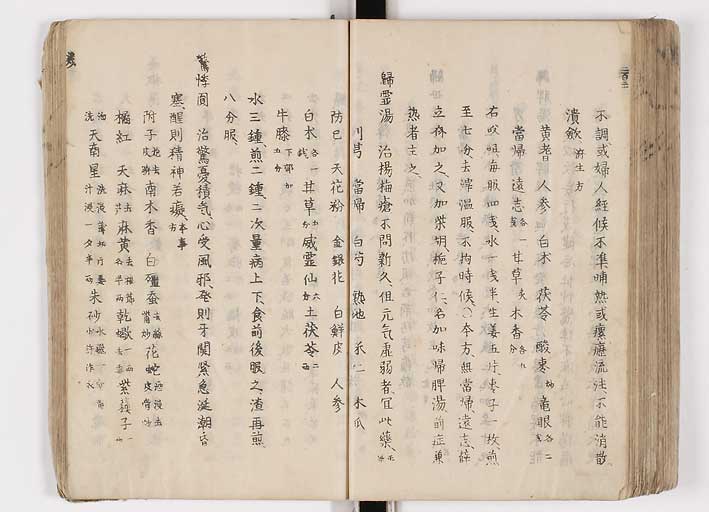 不調或婦人経候不準晡熱或瘰癧流注不能消散
潰斂 済生方
黄耆 人参 白朮 茯苓 酸棗 竜眼 各二
當帰 遠志 各一 甘草 木香 各五
右㕮咀、毎服四戔、水一戔半生姜五片、棗子一枚、煎
至七分去滓温服不拘時候、〇本方無當帰、遠志、薛
立斎加之、又加柴胡梔子仁、名加味帰脾湯、前症兼
熱者主之、
歸霊湯 治揚梅瘡不問新久、但元気虚弱者、宜此薬、
川芎 當帰 白芍 熟地 米仁 木瓜
防已 天花粉 金銀花 白鮮皮 人参
白朮 各一 甘草 威霊仙 六分 土茯苓 二
牛膝 下部加
水三鍾、煎二鍾、二次量病上下、食前後服之、渣再煎
八分服、
驚悸圓 治驚憂積気心受風邪、発則牙関緊急涎潮昏
塞、醒則精神若癡、本事方
附子 南木香 白殭蚕 花蛇
橘紅 天麻 麻黄 乾蝎 紫蘇子
天南星 朱砂